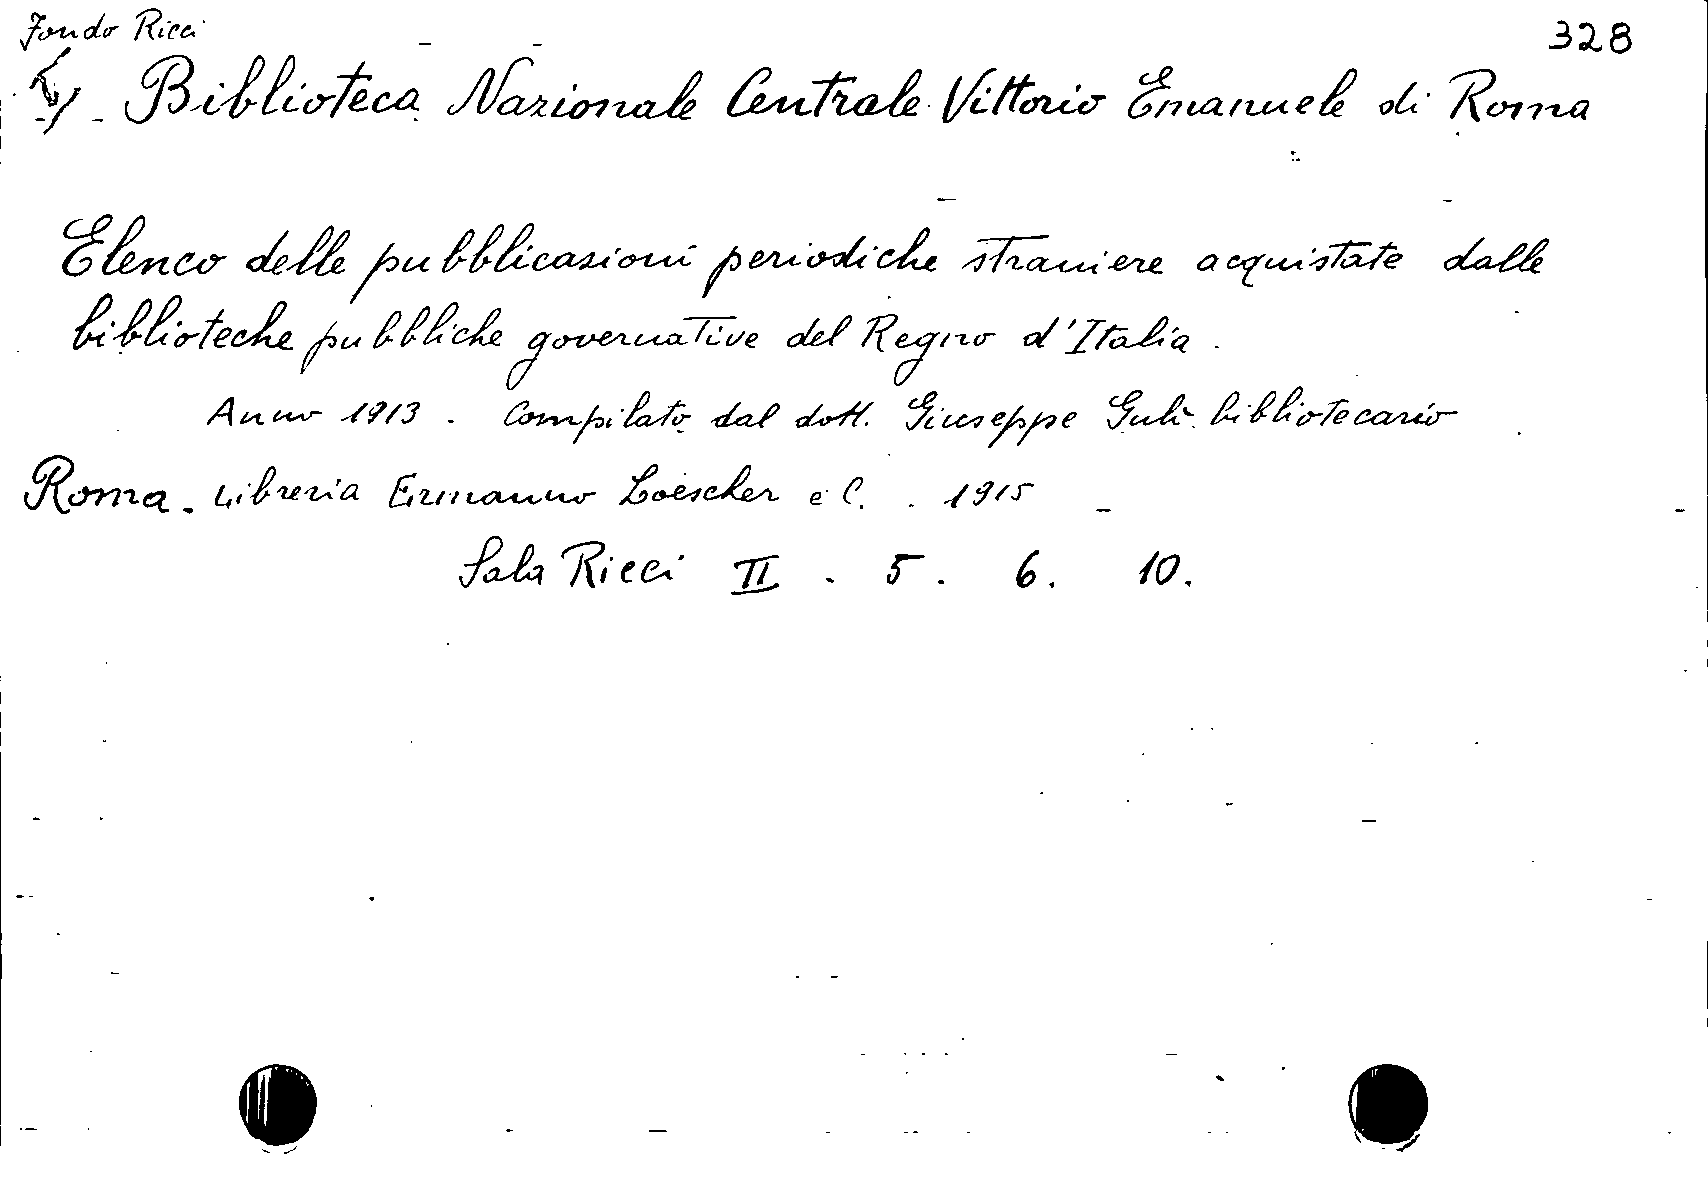 Fondo Ricci 328
Biblioteca Nazionale Centrale Vittorio Emanuele di Roma
Elenco delle pubblicazioni periodiche straniere acquistate dalle
biblioteche pubbliche governative del Regno d'Italia.
Anno 1913. Compilato dal dott. Giuseppe Gulì bibliotecario
Roma. Libreria Ermanno Loescher e C. . 1915
Sala Ricci II . 5. 6. 10.